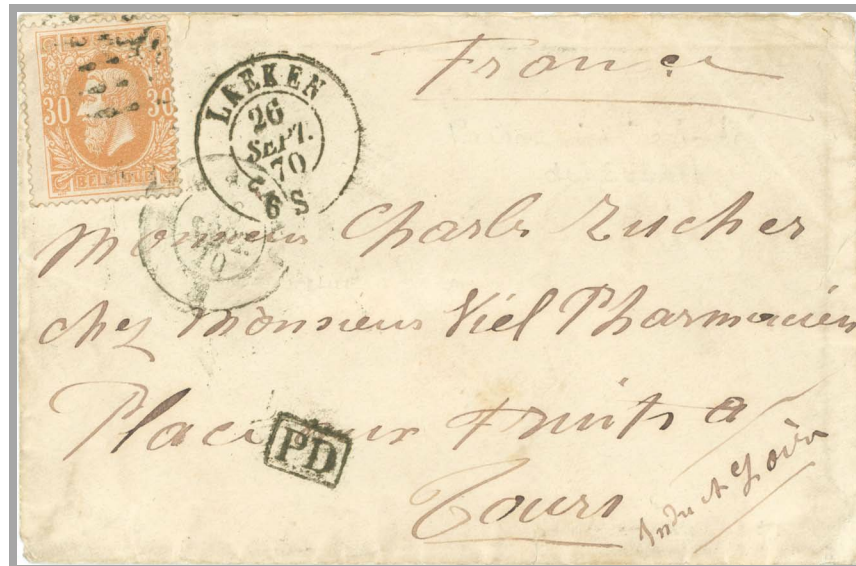 30 30
BELGIQUE
LAEKEN
26
SEPT.
70
6 S
France
Monsieur Charls Zucher
chez Monsieur Viel Pharmacien
Place aux Fruits a
PD
Tours
Indre et Loire